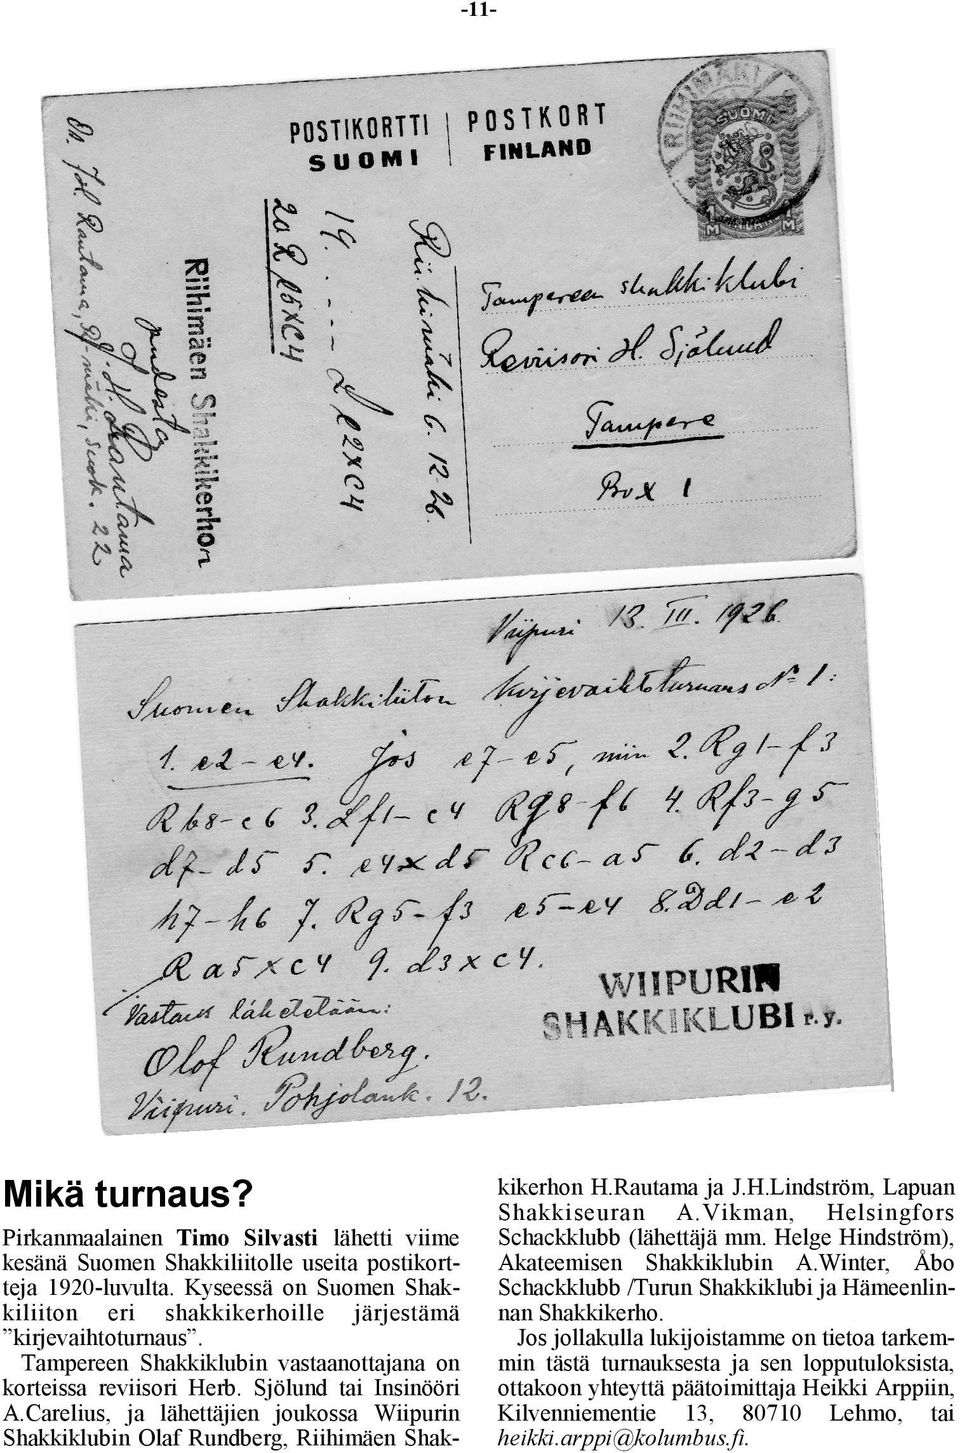 -11-
POSTIKORTTI | POSTKORT
SUOMI | FINLAND
RIIHIMÄKI
SUOMI
1 M
Tampereen shakkiklubi
Reviisori H. Sjölund
Tampere
Box 1
Riihimäki 6. 12. 26.
19. . . . . L e2XC4
20 R b5XC4
Riihimäen Shakkikerhon
puolesta
J. H. Rautama
Os. Rautama, R:mäki, Suok. 22
Viipuri 13. III. 1926.
Suomen Shakkiliiton Kirjevaihtoturnaus No 1:
1. e2-e4. Jos e7-e5, niin 2. Rg1-f3
Rb8-c6 3. Lf1-c4 Rg8-f6 4. Rf3-g5
d7-d5 5. e4xd5 Rc6-a5 6. d2-d3
h7-h6 7. Rg5-f3 e5-e4 8. Dd1-e2
Ra5xc4 9. d3xc4.
Vastaus lähetetään:
Olof Rundberg.
Viipuri. Pohjolank. 12.
WIIPURIN
SHAKKIKLUBI r.y.
Mikä turnaus?
Pirkanmaalainen Timo Silvasti lähetti viime
kesänä Suomen Shakkiliitolle useita postikort-
teja 1920-luvulta. Kyseessä on Suomen Shak-
kiliiton eri shakkikerhoille järjestämä
”kirjevaihtoturnaus”.
Tampereen Shakkiklubin vastaanottajana on
korteissa reviisori Herb. Sjölund tai Insinööri
A.Carelius, ja lähettäjien joukossa Wiipurin
Shakkiklubin Olaf Rundberg, Riihimäen Shak-
kikerhon H.Rautama ja J.H.Lindström, Lapuan
Shakkiseuran A.Vikman, Helsingfors
Schackklubb (lähettäjä mm. Helge Hindström),
Akateemisen Shakkiklubin A.Winter, Åbo
Schackklubb /Turun Shakkiklubi ja Hämeenlin-
nan Shakkikerho.
Jos jollakulla lukijoistamme on tietoa tarkem-
min tästä turnauksesta ja sen lopputuloksista,
ottakoon yhteyttä päätoimittaja Heikki Arppiin,
Kilvenniementie 13, 80710 Lehmo, tai
heikki.arppi@kolumbus.fi.